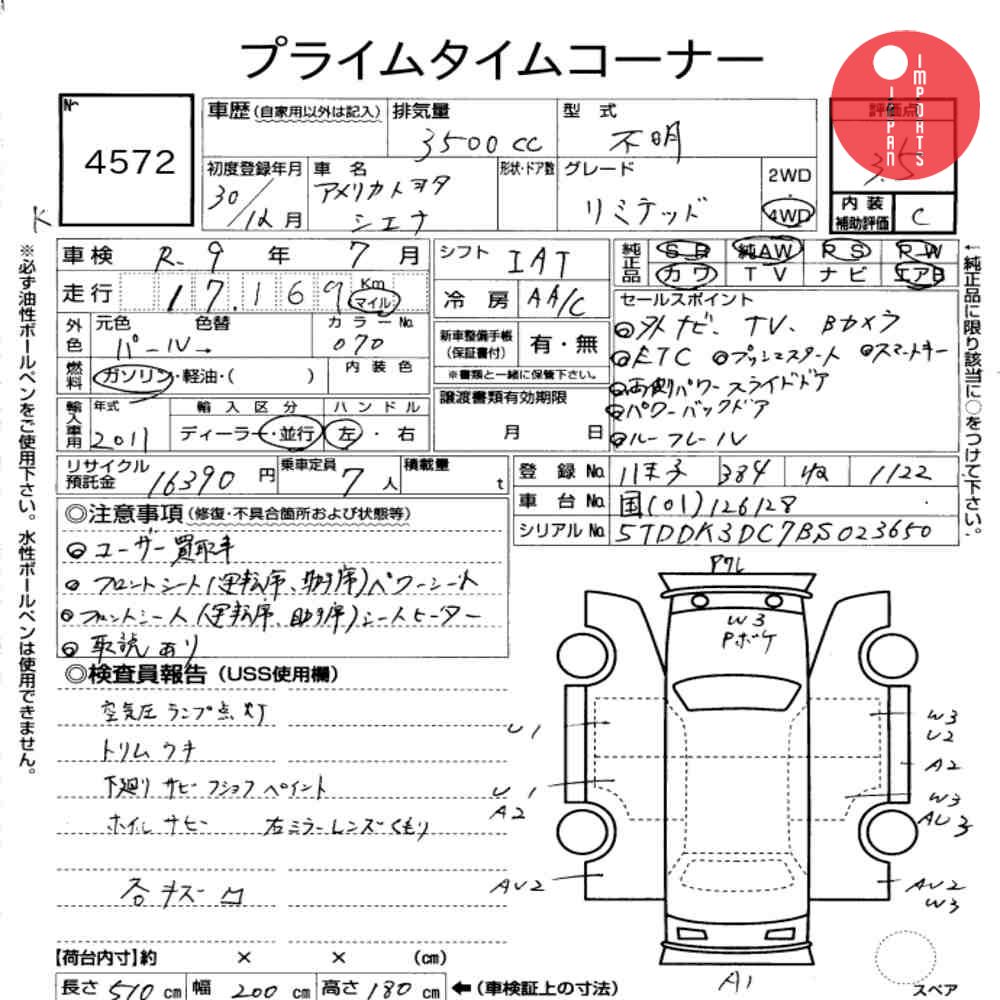 プライムタイムコーナー
№
4572
車歴(自家用以外は記入)
排気量
3500cc
型 式
不明
評価点
3.5
JAPAN IMPORTS
初度登録年月
30/12月
車 名
アメリカトヨタ
シエナ
形状・ドア数
グレード
リミテッド
2WD
・
4WD
内装
補助評価
C
K
車検 R. 9 年 7 月
走行 17.169 Km マイル
外色
元色
色替
パール
カラーNo.
070
燃料
ガソリン・軽油・( )
内装色
輸入車用
年式
2011
輸入区分
ディーラー・並行
ハンドル
左・右
シフト
IAT
冷房
AA/C
新車整備手帳
(保証書付)
有・無
※書類と一緒に保管下さい。
譲渡書類有効期限
月 日
純正品
SR 純AW PS PW
カワ TV ナビ エアB
セールスポイント
◎外ナビ、TV、Bカメラ
◎ETC ◎プッシュスタート ◎スマートキー
◎両側パワースライドドア
◎パワーバックドア
◎ルーフレール
リサイクル
預託金
16390 円
乗車定員
7人
積載量
t
登録No.
384
1122
車台No.
国(01)126128
シリアルNo.
5TDDK3DC7BS023650
◎注意事項(修復・不具合箇所および状態等)
◎ユーザー買取車
◎フロントシート(運転席、助手席)パワーシート
◎フロントシート(運転席、助手席)シートヒーター
◎取説あり
◎検査員報告(USS使用欄)
空気圧ランプ点灯
トリムワキ
下廻りサビ フショク ペイント
ホイルサビー 右ミラーレンズくもり
各キズ凹
※必ず油性ボールペンをご使用下さい。水性ボールペンは使用できません。
←純正品に限り該当に○をつけて下さい。
アワレ
W3
Pボケ
U1
U1
A2
AU2
W3
U2
A2
W3
AU3
AU2
W3
A1
スペア
【荷台内寸】約 × × (cm)
長さ 510 cm 幅 200 cm 高さ 180 cm ←(車検証上の寸法)